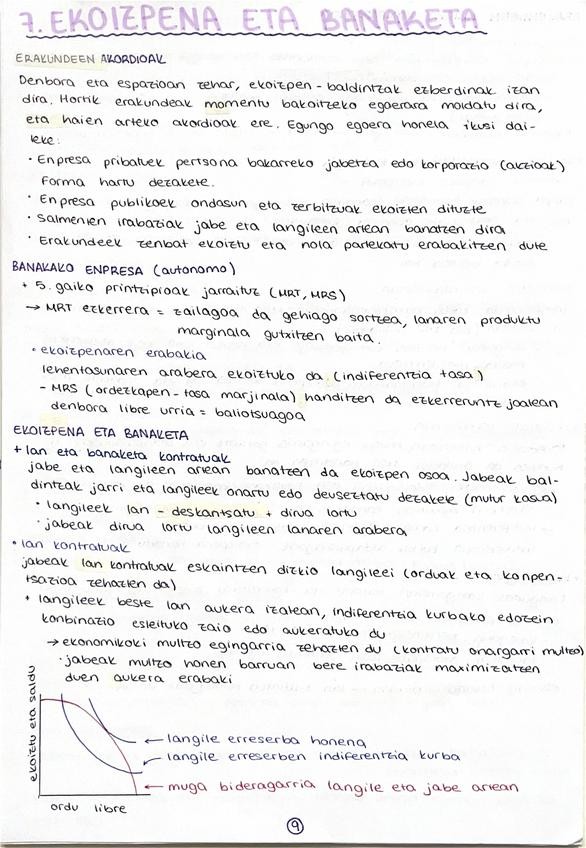 7. EKOIZPENA ETA BANAKETA
ERAKUNDEEN AKORDIOAK
Denbora eta espazioan zehar, ekoizpen-baldintzak ezberdinak izan
dira. Hortik erakundeak momentu bakoitzeko egoerara moldatu dira,
eta haien arteko akordioak ere. Egungo egoera honela ikusi dai-
teke:
· Enpresa pribatuek pertsona bakarreko jabetza edo korporazio (akzioak)
forma hartu dezakete.
· Enpresa publikoek ondasun eta zerbitzuak ekoizten dituzte
· Salmenten irabaziak jabe eta langileen artean banatzen dira
· Erakundeek zenbat ekoiztu eta nola partekatu erabakitzen dute
BANAKAKO ENPRESA (autonomo)
+ 5. gaiko printzipioak jarraituz (MRT, MRS)
→ MRT ezkerrera = zailagoa da gehiago sortzea, lanaren produktu
marginala gutxitzen baita.
· ekoizpenaren erabakia
lehentasunaren arabera ekoiztuko da (indiferentzia tasa)
- MRS (ordezkapen-tasa marjinala) handitzen da ezkerreruntz joatean
denbora libre urria = baliotsuagoa
EKOIZPENA ETA BANAKETA
+ lan eta banaketa kontratuak
jabe eta langileen artean banatzen da ekoizpen osoa. Jabeak bal-
dintzak jarri eta langileek onartu edo deuseztatu dezakete (mutur kasua)
· langileek lan - deskantsatu + dirua lortu
· jabeak dirua lortu langileen lanaren arabera
· lan kontratuak
jabeak lan kontratuak eskaintzen dizkio langileei (orduak eta konpen-
tsazioa zehazten da)
+ langileek beste lan aukera izatean, indiferentzia kurbako edozein
konbinazio esleituko zaio edo aukeratuko du
→ ekonomikoki multzo egingarria zehazten du (kontratu onargarri multzo)
· jabeak multzo honen barruan bere irabaziak maximizatzen
duen aukera erabaki
ekoiztu eta saldu
← langile erreserba honena
← langile erreserben indiferentzia kurba
← muga bideragarria langile eta jabe artean
ordu libre
9